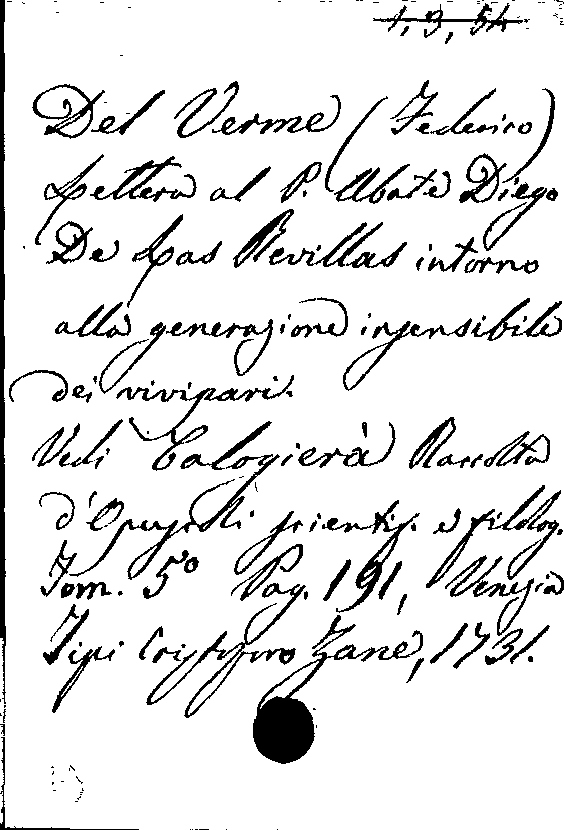 1, 3, 54
Del Verme (Federico)
Lettera al P. Abate Diego
De Las Revillas intorno
alla generazione insensibile
dei vivipari.
Vedi Calogierà Raccolta
d'Opuscoli scientif. e filolog.
Tom. 5º Pag. 191, Venezia
Tipi Cristoforo Zane, 1731.